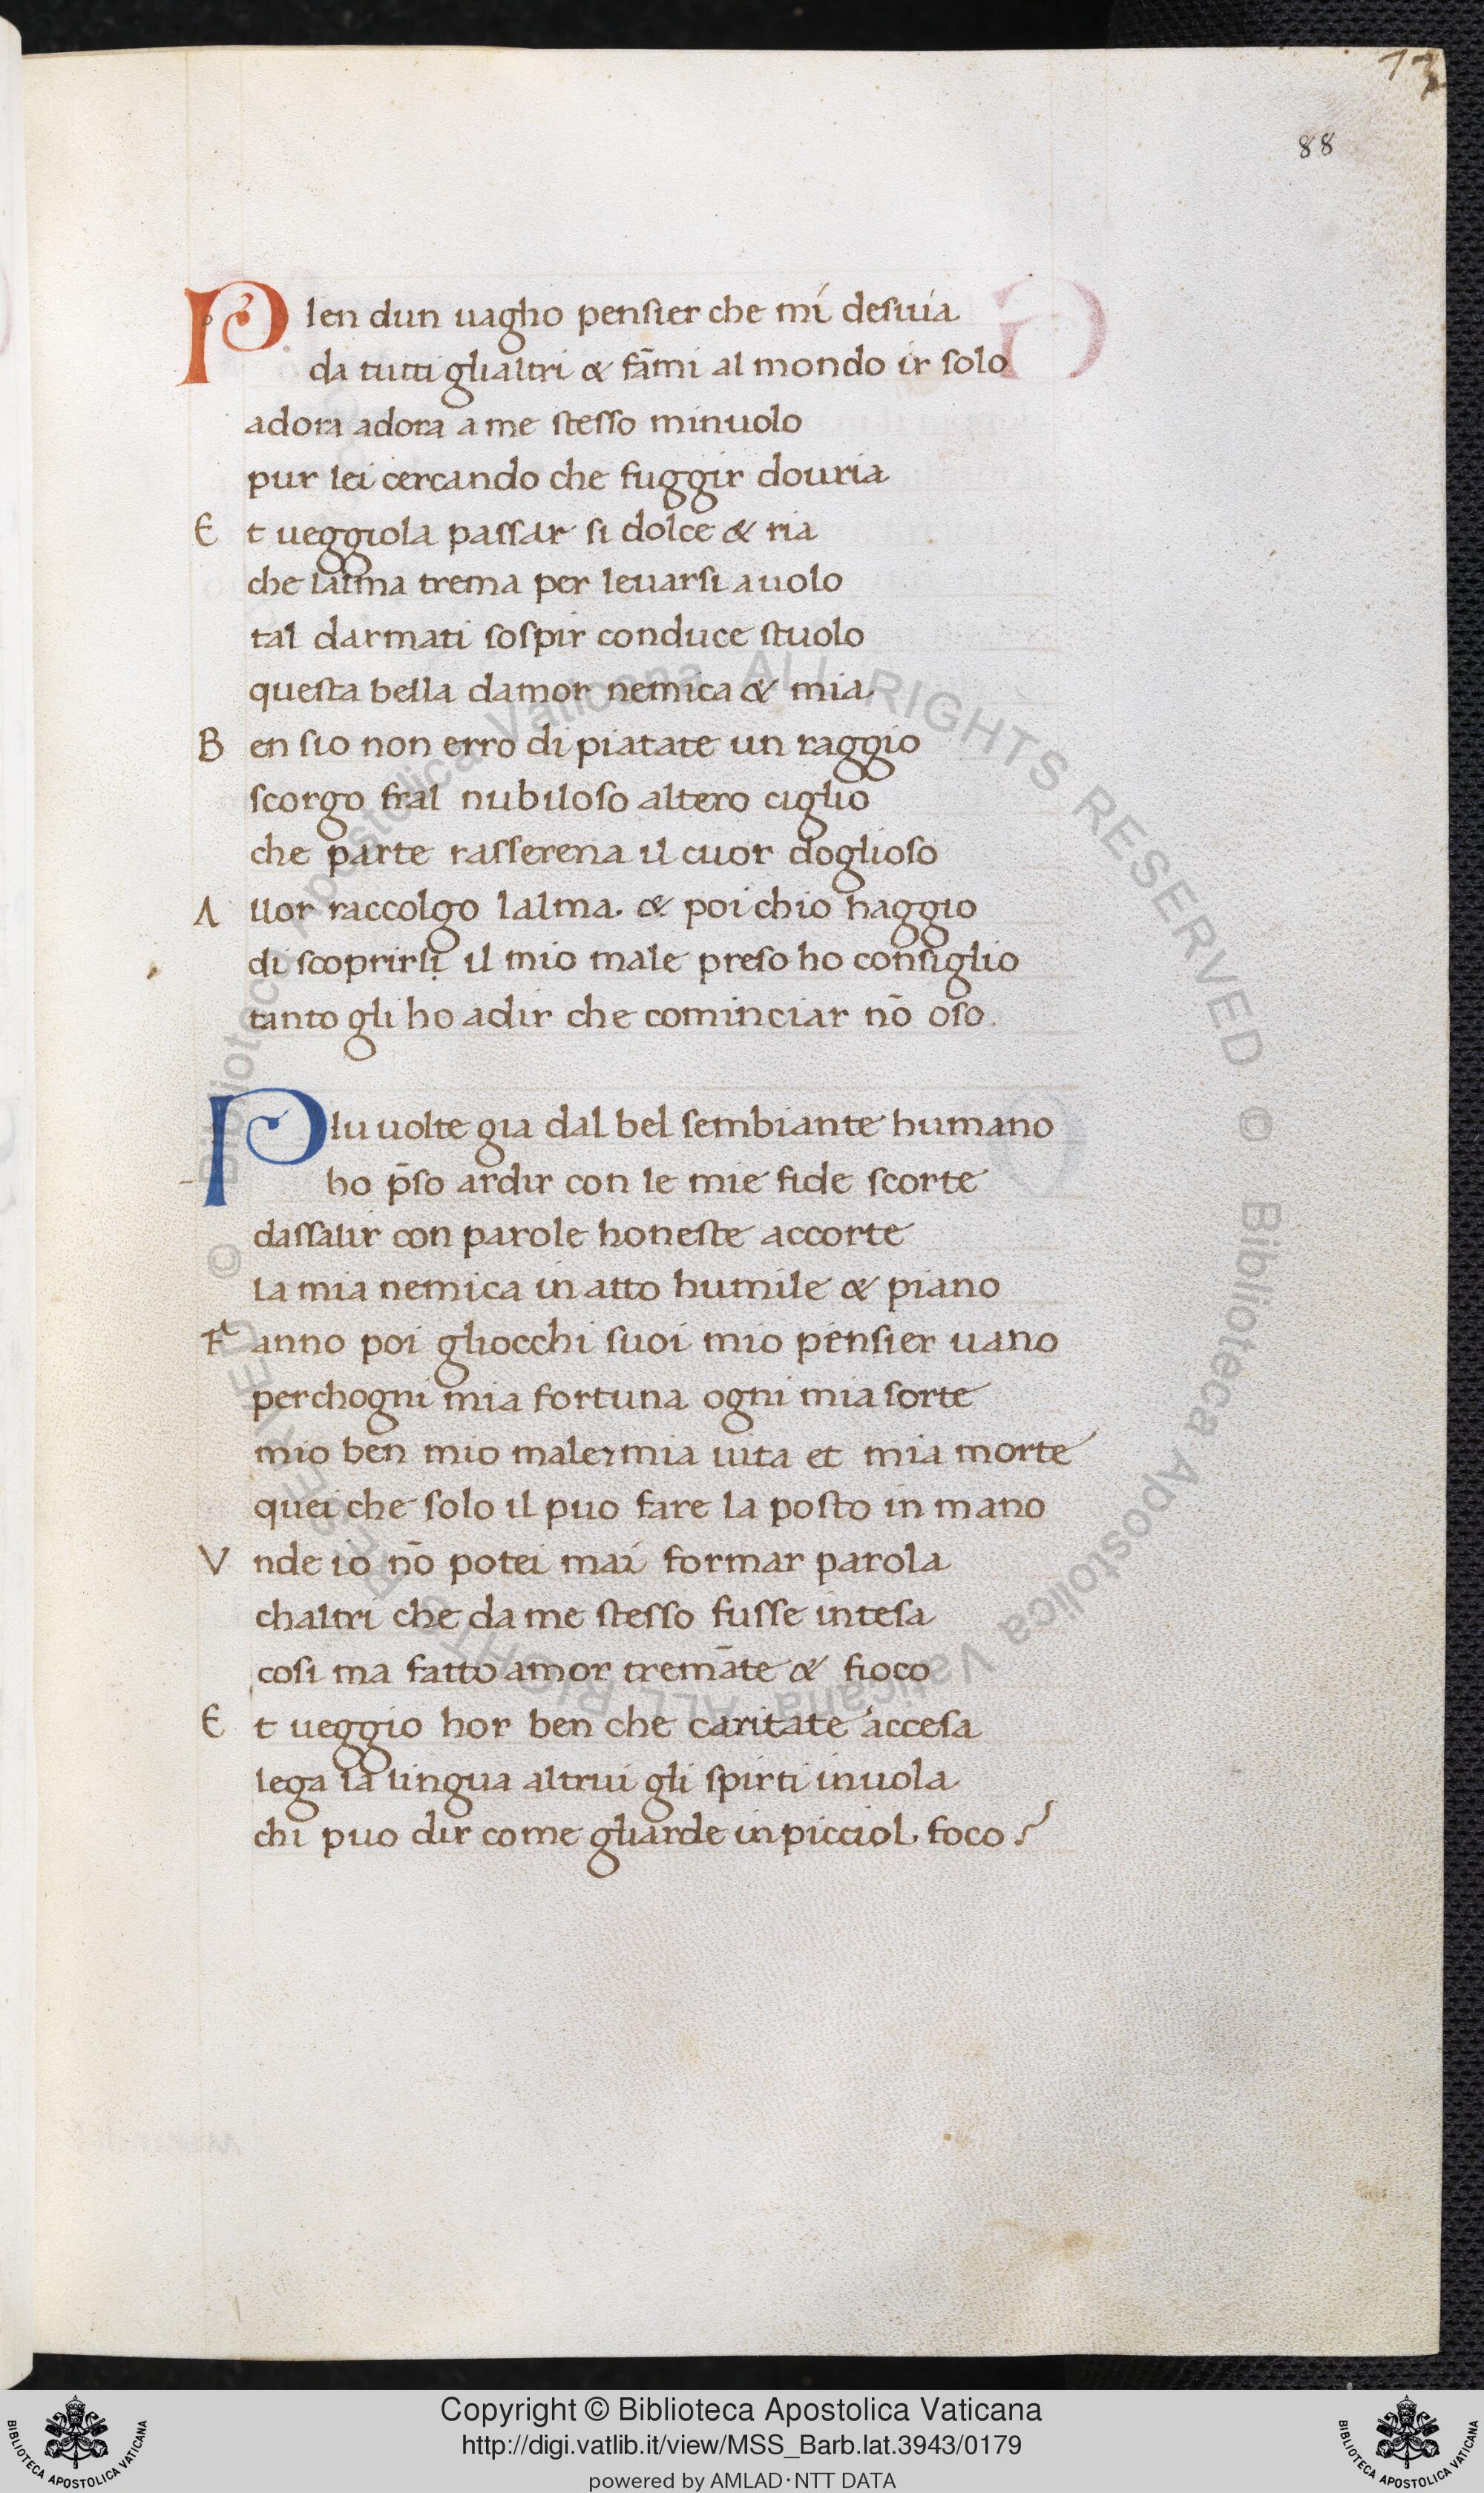 13
88
PIen dun uagho pensier che mí desuía
da tutti glialtri & fāmi al mondo ir solo
adora adora a me stesso minuolo
pur lei cercando che fuggir douria
Et ueggiola passar si dolce & ria
che lalma trema per leuarsi a uolo
tal darmati sospir conduce stuolo
questa bella damor nemica & mia
Ben sio non erro di piatate un raggio
scorgo fral nubiloso altero ciglio
che parte rasserena il cuor doglioso
Allor raccolgo lalma. & poi chio haggio
di scoprirli il mio male preso ho consiglio
tanto gli ho adir che cominciar nō oso.
PIu uolte gia dal bel sembiante humano
ho p̄so ardir con le mie fide scorte
dassalir con parole honeste accorte
la mia nemica in atto humile & piano
Fanno poi gliocchi suoi mio pensier uano
perchogni mia fortuna ogni mia sorte
mio ben mio male⁊mia uita et mia morte
quei che solo il puo fare la posto in mano
Vnde io nō potei mai formar parola
chaltri che da me stesso fusse intesa
cosi ma fatto amor tremāte & fioco
Et ueggio hor ben che caritate accesa
lega la lingua altrui gli spirti inuola
chi puo dir come gliarde in picciol foco
© Biblioteca Apostolica Vaticana ALL RIGHTS RESERVED © Biblioteca Apostolica Vaticana ALL RIGHTS RESERVED
BIBLIOTECA APOSTOLICA VATICANA
Copyright © Biblioteca Apostolica Vaticana
http://digi.vatlib.it/view/MSS_Barb.lat.3943/0179
powered by AMLAD·NTT DATA
BIBLIOTECA APOSTOLICA VATICANA